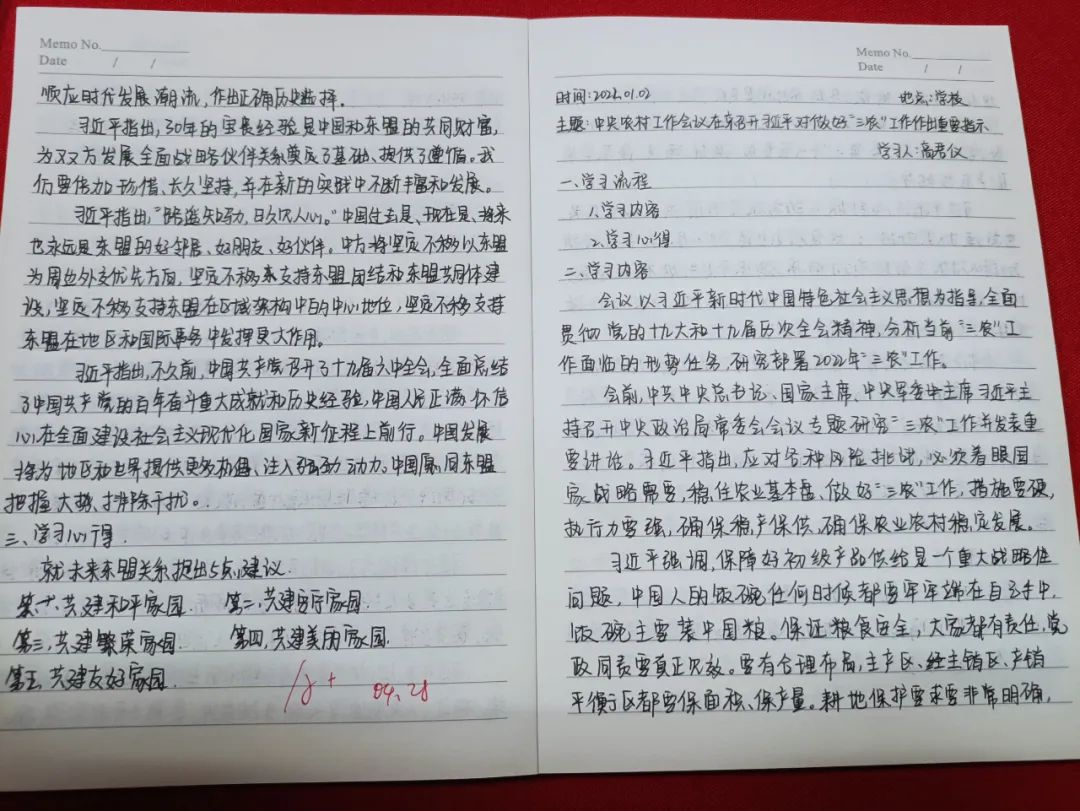 Memo No.
Date / /
顺应时代发展潮流,作出正确历史选择.
习近平指出,30年的宝贵经验是中国和东盟的共同财富,
为双方发展全面战略伙伴关系奠定了基础、提供了遵循。我
们要倍加珍惜、长久坚持,并在新的实践中不断丰富和发展。
习近平指出,“路遥知马力,日久见人心。”中国过去是、现在是、将来
也永远是东盟的好邻居、好朋友、好伙伴。中方将坚定不移以东盟
为周边外交优先方向,坚定不移支持东盟团结和东盟共同体建
设,坚定不移支持东盟在区域架构中的中心地位,坚定不移支持
东盟在地区和国际事务中发挥更大作用。
习近平指出,不久前,中国共产党召开了十九届六中全会,全面总结
了中国共产党的百年奋斗重大成就和历史经验,中国人民正满怀信
心在全面建设社会主义现代化国家新征程上前行。中国发展
将为地区和世界提供更多机遇、注入强劲动力。中国愿同东盟
把握大势、排除干扰。
三、学习心得.
就未来东盟关系提出5点建议.
第一,共建和平家园. 第二,共建安宁家园.
第三,共建繁荣家园 第四,共建美丽家园.
第五,共建友好家园.
04.28
Memo No.
Date / /
时间:2022.01.02 地点:学校
主题:中央农村工作会议在京召开习近平对做好“三农”工作作出重要指示
学习人:高君仪
一、学习流程
1.学习内容
2.学习心得
二、学习内容
会议以习近平新时代中国特色社会主义思想为指导,全面
贯彻党的十九大和十九届历次全会精神,分析当前“三农”工
作面临的形势任务,研究部署2022年“三农”工作。
会前,中共中央总书记、国家主席、中央军委主席习近平主
持召开中央政治局常委会会议专题研究“三农”工作并发表重
要讲话。习近平指出,应对各种风险挑战,必须着眼国
家战略需要,稳住农业基本盘、做好“三农”工作,措施要硬,
执行力要强,确保稳产保供,确保农业农村稳定发展。
习近平强调,保障好初级产品供给是一个重大战略性
问题,中国人的饭碗任何时候都要牢牢端在自己手中,
饭碗主要装中国粮。保证粮食安全,大家都有责任,党
政同责要真正见效。要有合理布局,主产区、主销区、产销
平衡区都要保面积、保产量。耕地保护要求要非常明确,